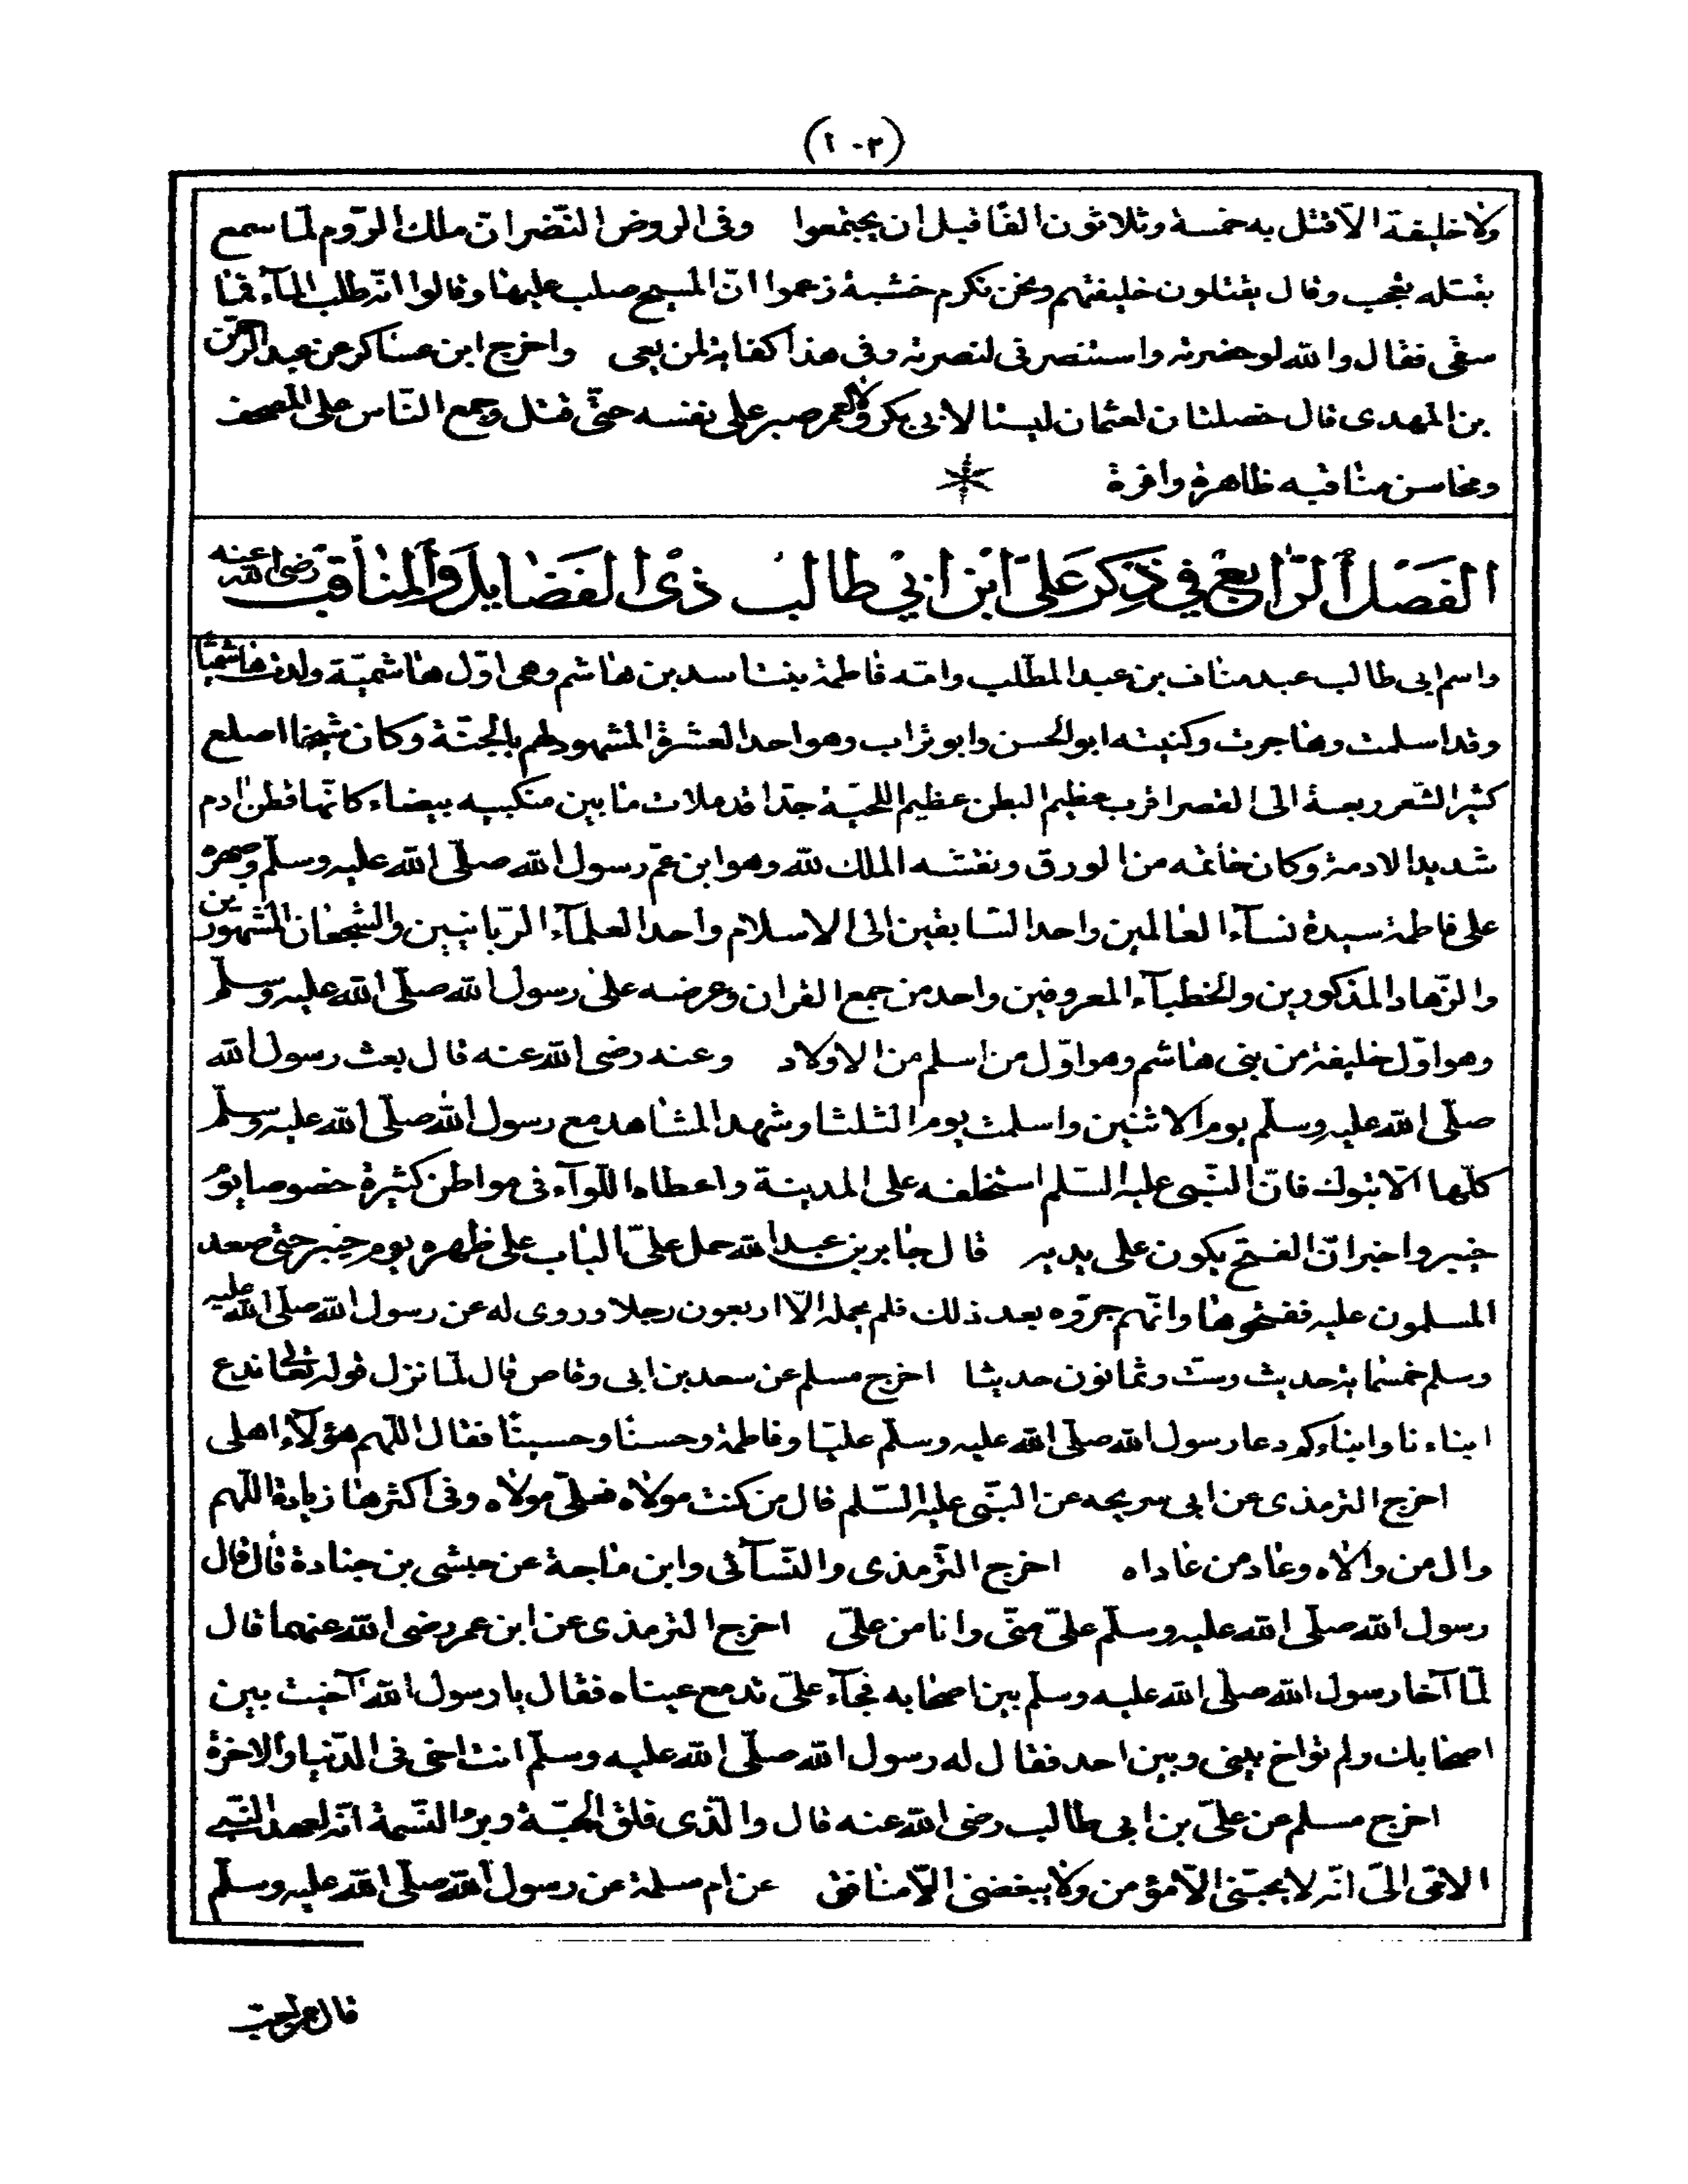 (١٠٢)
ولا خليفة الا قتل به خمسة وثلاثون الفًا قبل ان يجتمعوا وفى الروض النّضر انّ ملك الرّوم لمّا سمع
بقتله تعجب وقال يقتلون خليفتهم ونحن نكرم خشبة زعموا انّ المسيح صلب عليها وقالوا انّه طلب المآء فما
سقى فقال والله لو حضرته واستنصرنى لنصرته وفى هذا كفاية لمن يعى واخرج ابن عساكر عن عبد الرحمن
بن المهدى قال خصلتان لعثمان ليستا لابى بكر ولا لعمر صبر على نفسه حتّى قتل وجمع النّاس على المصحف
ومحاسن مناقبه ظاهرة وافرة
الفَصْل الرّابع في ذِكر عَلىّ ابْن ابي طالب ذى الفَضايل وَالمناقب رضى الله عنه
واسم ابى طالب عبد مناف بن عبد المطّلب وامّه فاطمة بنت اسد بن هاشم وهى اوّل هاشميّة ولدت هاشميًّا
وقد اسلمت وهاجرت وكنيته ابو الحسن وابو تراب وهو احد العشرة المشهود لهم بالجنّة وكان شيخا اصلع
كثير الشّعر ربعة الى القصر اقرب عظيم البطن عظيم اللحية جدّا قد ملات ما بين منكبيه بيضاء كانّها قطن ادم
شديد الادمة وكان خاتمه من الورق ونقشه الملك لله وهو ابن عمّ رسول الله صلّى الله عليه وسلّم وصهره
على فاطمة سيدة نسآء العالمين واحد السّابقين الى الاسلام واحد العلمآء الرّبانيين والشّجعان المشهورين
والزّهاد المذكورين والخطبآء المعروفين واحد من جمع القران وعرضه على رسول الله صلّى الله عليه وسلّم
وهو اوّل خليفة من بنى هاشم وهو اوّل من اسلم من الاولاد وعنه رضى الله عنه قال بعث رسول الله
صلّى الله عليه وسلّم يوم الاثنين واسلمت يوم الثلثا وشهد المشاهد مع رسول الله صلّى الله عليه وسلّم
كلّها الّا تبوك فانّ النّبى عليه السّلم استخلفه على المدينة واعطاه اللوآء فى مواطن كثيرة خصوصا يوم
خيبر واخبر انّ الفتح يكون على يديه قال جابر بن عبد الله حمل علىّ الباب على ظهره يوم خيبر حتى صعد
المسلمون عليه ففتحوها وانّهم جرّوه بعد ذلك فلم يحمله الّا اربعون رجلا وروى له عن رسول الله صلّى الله عليه
وسلم خمسماية حديث وستّ وثمانون حديثا اخرج مسلم عن سعد بن ابى وقاص قال لمّا نزل قوله تعالى ندع
ابناءنا وابناءكم دعا رسول الله صلّى الله عليه وسلّم عليّا وفاطمة وحسنًا وحسينًا فقال اللّهم هؤلآء اهلى
اخرج الترمذى عن ابى سريحه عن النّبى عليه السّلم قال من كنت مولاه فعلىّ مولاه وفى اكثرها زيادة اللّهم
وال من والاه وعاد من عاداه اخرج التّرمذى والنّسآئى وابن ماجة عن حبشى بن جنادة قال قال
رسول الله صلّى الله عليه وسلّم علىّ منّى وانا من علىّ اخرج الترمذى عن ابن عمر رضى الله عنهما قال
لمّا آخا رسول الله صلى الله عليه وسلّم بين اصحابه فجآء علىّ تدمع عيناه فقال يا رسول الله آخيت بين
اصحابك ولم تواخ بينى وبين احد فقال له رسول الله صلّى الله عليه وسلّم انت اخى فى الدّنيا والاخرة
اخرج مسلم عن علىّ بن ابى طالب رضى الله عنه قال والّذى فلق الحبّة وبرء النّسمة انّه لعهد النّبى
الامّى الىّ انّه لا يحبّنى الّا مؤمن ولا يبغضنى الّا منافق عن ام سلمة عن رسول الله صلّى الله عليه وسلّم
قال من احب